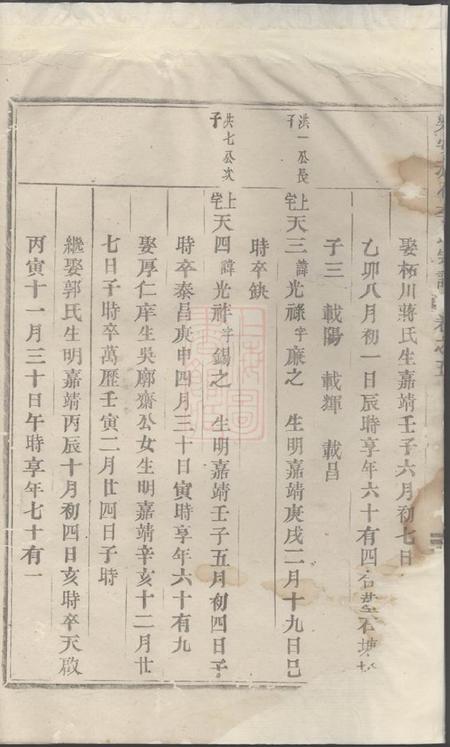 娶柘川蔣氏生嘉靖壬子六月初七日
乙卯八月初一日辰時享年六十有四合塟石塘
子三 載陽 載輝 載昌
洪一公長子
上宅天三諱光祿字廉之 生明嘉靖庚戌二月十九日巳
時卒缺
洪七公次子
上宅天四諱光祥字錫之 生明嘉靖壬子五月初四日子
時卒泰昌庚申四月三十日寅時享年六十有九
娶厚仁庠生吳廓齋公女生明嘉靖辛亥十二月廿
七日子時卒萬歷壬寅二月廿四日子時
繼娶郭氏生明嘉靖丙辰十月初四日亥時卒天啟
丙寅十一月三十日午時享年七十有一